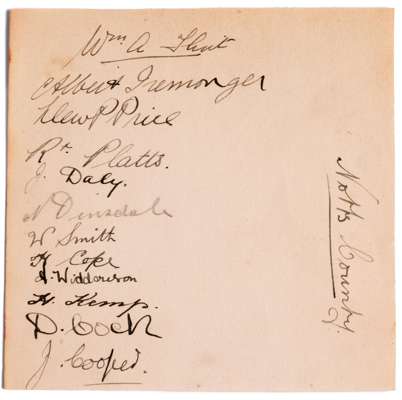 Wm A Flint
Albert Iremonger
Llew P Price
Rt. Platts.
J. Daly.
N Dinsdale
W Smith
H Cope
A. Widdowson
H. Kemp.
D. Cock
J. Cooper.
Notts County.